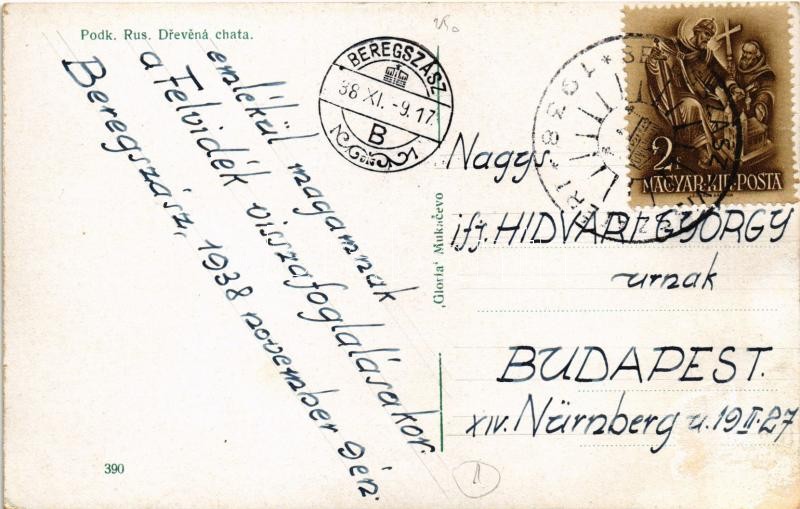 Podk. Rus. Dřevěná chata.
emlékül magamnak
a Felvidék visszafoglalásakor.
Beregszász, 1938 november 9én.
BEREGSZÁSZ
38 XI. -9. 17.
B
1938
2
MAGYAR·KIR·POSTA
Nagys.
ifj. HIDVÁRI GYÖRGY
urnak
BUDAPEST.
XIV. Nürnberg u. 19 II. 27
„Gloria" Mukačevo
390
1